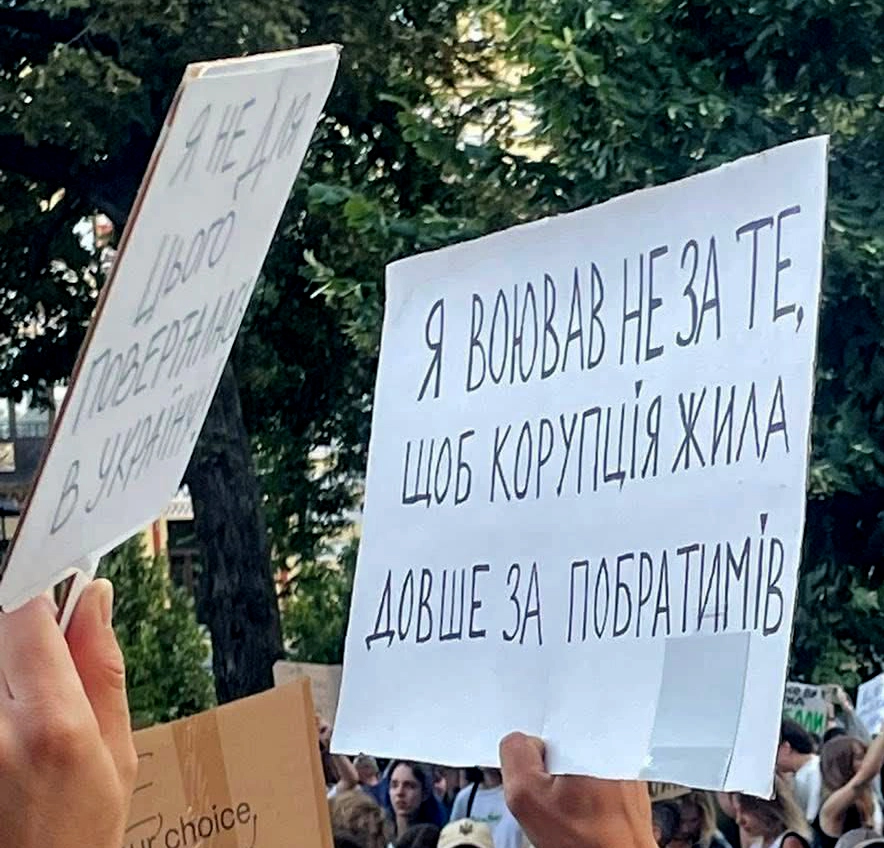 Я НЕ ДЛЯ
ЦЬОГО
ПОВЕРТАЛАСЬ
В УКРАЇНУ!
Я ВОЮВАВ НЕ ЗА ТЕ,
ЩОБ КОРУПЦІЯ ЖИЛА
ДОВШЕ ЗА ПОБРАТИМІВ
choice,